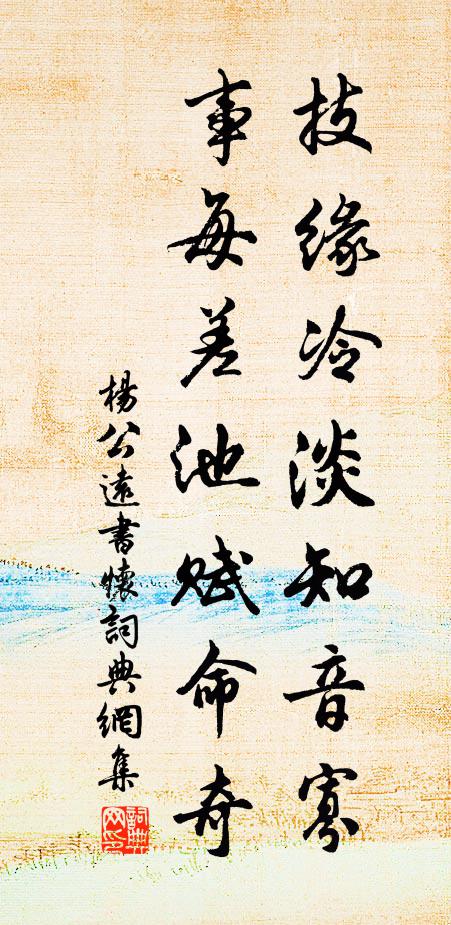 技緣冷淡知音寡
事每差池賦命奇
楊公遠書懷詞典網集
詞典
网印